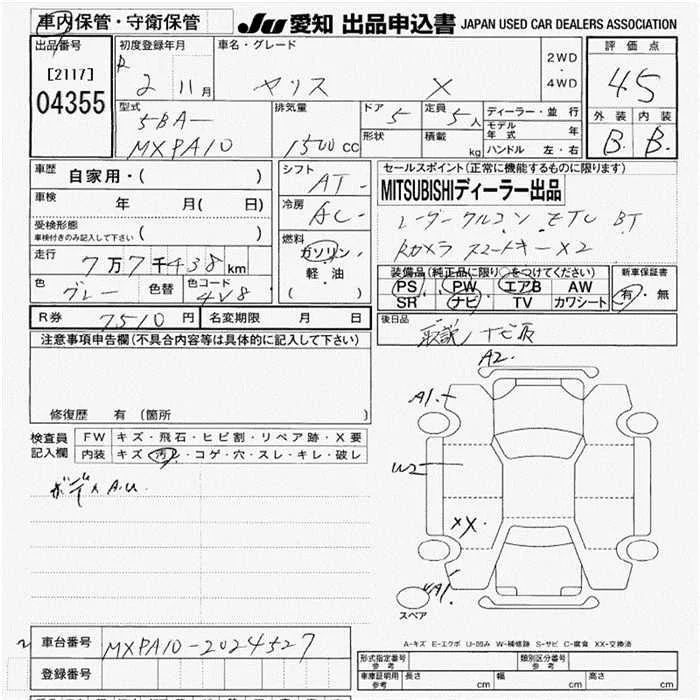 車内保管・守衛保管
JU 愛知 出品申込書 JAPAN USED CAR DEALERS ASSOCIATION
出品番号 初度登録年月 車名・グレード 2WD・4WD 評価点
[2117] R 2 11月 ヤリス X 4.5
04355
型式 排気量 ドア 5 定員 5人 ディーラー・並行 外装 内装
5BA- モデル年式 年 B. B.
MXPA10 1500cc 形状 積載 kg ハンドル 左・右
車歴 自家用・( )
シフト AT-
セールスポイント(正常に機能するものに限ります)
MITSUBISHIディーラー出品
車検 年 月( 日)
冷房 AC-
レーダークルコン ETC BT
受検形態 ( )
車検付きのみ記入して下さい
Rカメラ スマートキー×2
燃料 ガソリン 軽・油 ( )
走行 7万7千438km
装備品(純正品に限り○をつけてください) 新車保証書
PS PW エアB AW 有・無
SR ナビ TV カワシート
色 グレー 色替 色コード 4V8
R券 7,510円 名変期限 月 日
後日品 取説 ナビ取
注意事項申告欄(不具合内容等は具体的に記入して下さい)
修復歴 有(箇所 )
A2.
A1.
検査員記入欄 FW キズ・飛石・ヒビ割・リペア跡・X要
内装 キズ・汚レ・コゲ・穴・スレ・キレ・破レ
W2
ボディ A.U.
XX.
A1.
スペア
A-キズ E-エクボ U-凹み W-補修跡 S-サビ C-腐食 XX-交換済
車台番号 MXPA10-2024527
型式指定番号 参考 類別区分番号 参考
登録番号
車庫証明用 参考 長さ cm 幅 cm 高さ cm